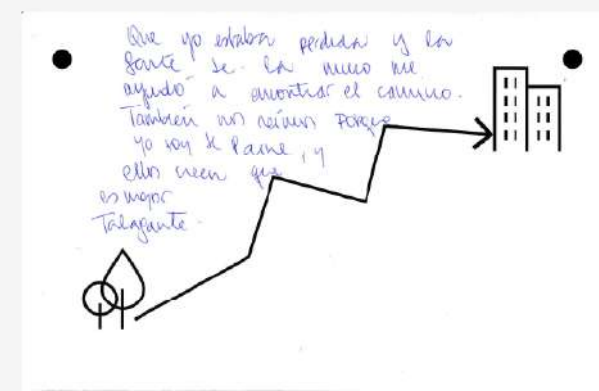 Que yo estaba perdida y la
gente se la micro me
ayudó a encontrar el camino.
También nos reímos porque
yo soy de Paine, y
ellos creen que
es mejor
Talagante.